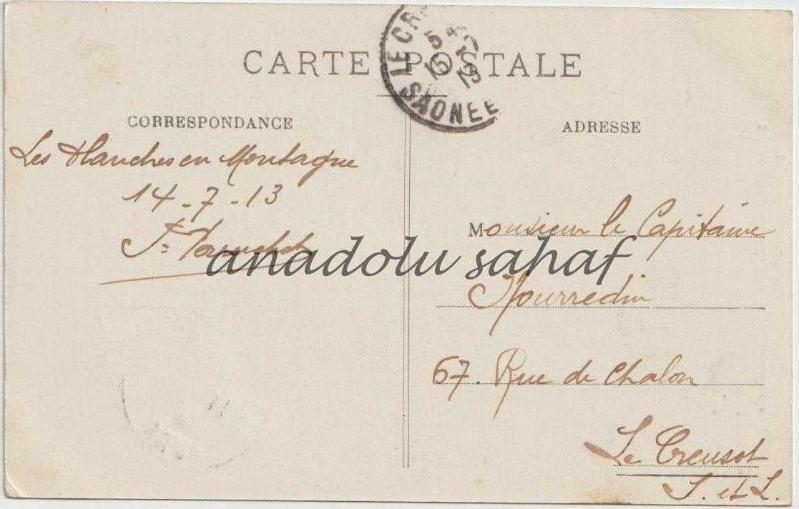 CARTE POSTALE
LE CR
5
15 7
13
SAONE E
CORRESPONDANCE
ADRESSE
Les Planches en Montagne
14-7-13
J=
anadolu sahaf
Monsieur le Capitaine
Nourredin
67. Rue de Chalon
Le Creusot
S. et L.